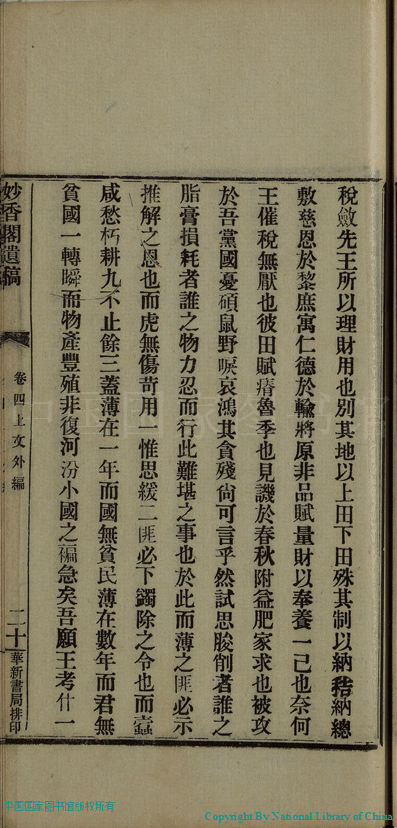 稅斂先王所以理財用也別其地以上田下田殊其制以納秸納總
敷慈恩於黎庶寓仁德於輸將原非品賦量財以奉養一己也奈何
王催稅無厭也彼田賦瘠魯季也見譏於春秋附益肥家求也被攻
於吾黨國憂碩鼠野唳哀鴻其貪殘尙可言乎然試思朘削者誰之
脂膏損耗者誰之物力忍而行此難堪之事也於此而薄之匪必示
推解之恩也而虎無傷苛用一惟思緩二匪必下蠲除之令也而蠹
咸愁朽耕九不止餘三蓋薄在一年而國無貧民薄在數年而君無
貧國一轉瞬而物產豐殖非復河汾小國之褊急矣吾願王考什一
妙香閣遺稿
卷四上文外編
二十
華新書局排印
中国国家图书馆版权所有
Copyright By National Library of China